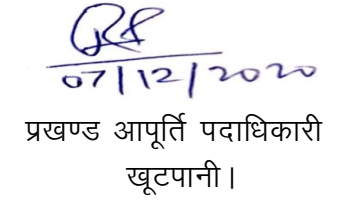 07/12/2020
प्रखण्ड आपूर्ति पदाधिकारी
खूटपानी।